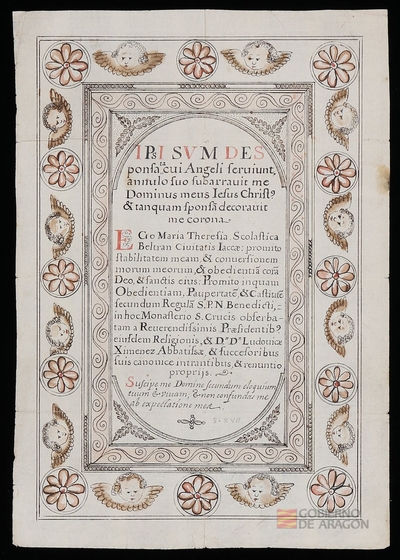 IPSI SVM DES
ponsata cui Angeli serviunt,
annulo suo subarravit me
Dominus meus Iesus Christ9
& tanquam sponsã decoravit
me corona.
EGo Maria Theresia Scolastica
Beltran Civitatis Iaccæ: promito
stabilitatem meam, & conversionem
morum meorum, & obedientiã corã
Deo, & sanctis eius: Promito inquam
Obedientiam, Paupertatē, & Castitatē
secundum Regulã S.P.N Benedicti,
in hoc Monasterio S. Crucis observa-
tam a Reverendissimis Præsidentib9
eiusdem Religionis, & D.ª D.ª Ludovicæ
Ximenez Abbatissæ, & succesoribus
suis canonice intrantibus, & renuntio
proprijs.
Suscipe me Domine secundum eloquium
tuum & vivam, & non confundas me
ab expectatione mea.
GOBIERNO
DE ARAGON